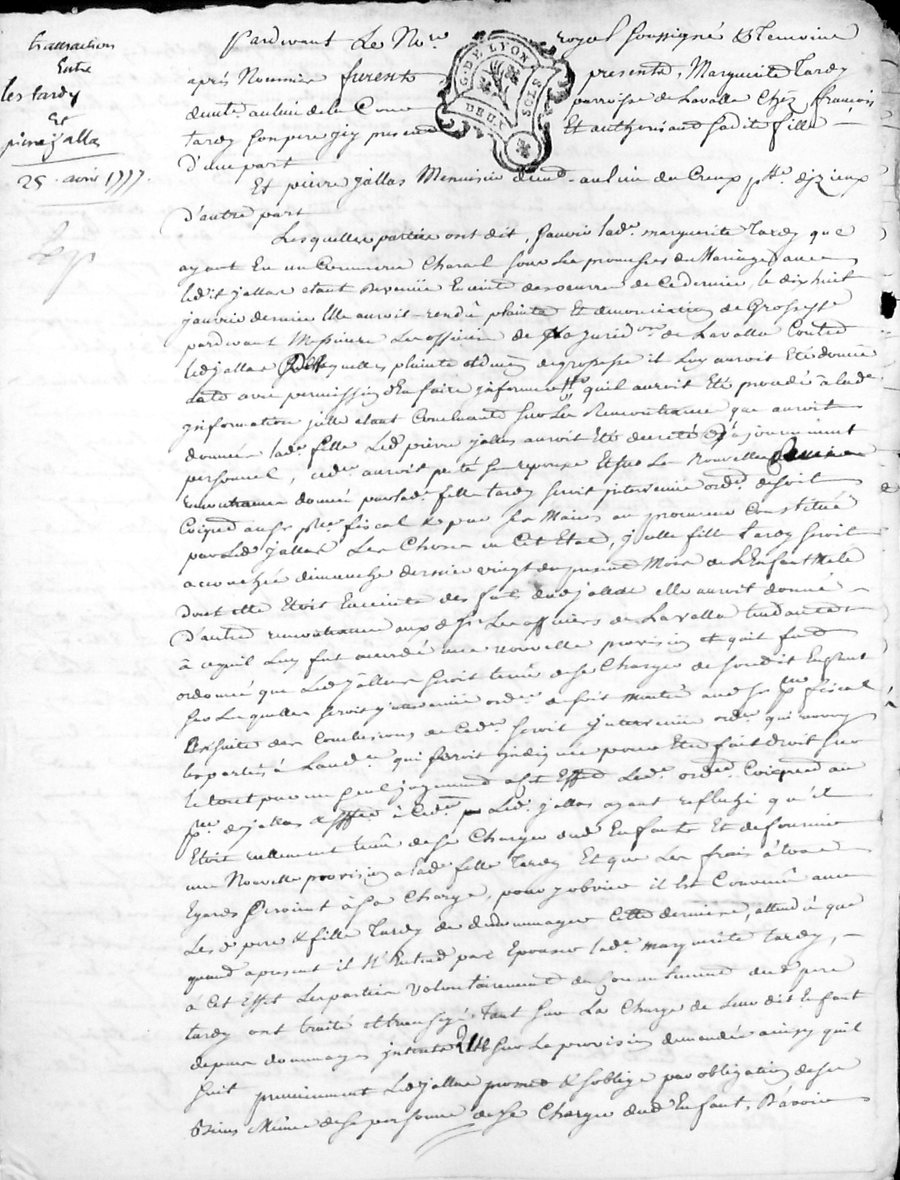 transaction
Entre
les tardy
Et
pierre jallas
25 avril 1777.
G. DE LYON
DEUX SOLS
Pardevant Le No.re royal soussigné & Temoins
après Nommés furent presents, Marguerite Tardy
demte. au lieu de la Cone parroisse de Lavalla Chéz françois
tardy son pere icy present Et authorisant sadite fille
D'une part
Et pierre jallas Menuisier dem.t au lieu du Creux p.sse d'izieux
d'autre part
Lesquelles parties ont dit, sauoir lad.e marguerite Tardy que
ayant Eu un Commerce Charnel sous les promesses de Mariage auec
led.it jallas etant Devenüe Enceinte des oeuvres de ce dernier, le dix huit
janvier dernier Elle auroit rendû plainte Et denonciation de Grossesse
pardevant Messieurs Les officiers de la jurid.on de Lavalla Contre
led jallas Desquelles plainte et de grossesse il Luy auroit Eté donné
acte avec permission d'En faire informer qu'il auroit Eté procedé à lad.e
information icelle etant Concluante sur Les Remontrances que auroit
données lad.e fille Led pierre jallas auroit Eté decreté d'ajournement
personnel, auroit preté sa reponse Et sur La Nouvelle
remontrance donnée par lad. fille tardy seroit intervenüe ord.ce de soit
Coigned au s.r p.r fiscal & par les Mains au procureur Constitué
par Led jallas Les Choses en Cet Etat, icelle fille tardy seroit
accouchée dimanche dernier vingt du present Mois de L'Enfant Male
dont elle Etoit Enceinte des faits dud jallas elle auroit donné
d'autre remontrance aux d. s.rs Les officiers de Lavalla tendante
à ce qu'il Luy fut accordé une nouvelle provision et quoit fut
ordonné que Led jallas seroit tenû de se Charger de son dit Enfant
sur Lesquelles seroit intervenüe ord.ce de soit montré aud s.r p.r fiscal
Ensuite des Conclusions de Ced.r seroit intervenüe ord.ce qui renvoy
les parties à Laud.ce qui seroit jndiquée pour Etre fait droit sur
le tout par un seul jugement a Cet Effet Led.e ord.ce Coigned au
p.r de jallas & à Ced.r Led. jallas ayant reflechi qu'il
Etoit reellement tenû de se Charger dud Enfant Et de fournir
une Nouvelle provision a lad.e fille Tardy Et que Les frais à tous
Egards seroient à sa Charge, pour y obvier il Est Convenû avec
Les d pere & fille Tardy de dedommager Cette derniere, attendû que
quand apresent il N'Entend pas Epouser lad.e marguerite Tardy,
à Cet Effet Les parties Volontairement du Consentement dud pere
tardy ont traité et transigé Tant sur La Charge de leur dit Enfant
depens dommages jnterets que sur La provision demandée ainsy quil
suit premierement Led jallas promet & s'oblige par obligation de ses
Biens Même de sa personne de se Charger dud Enfant, D'avoir